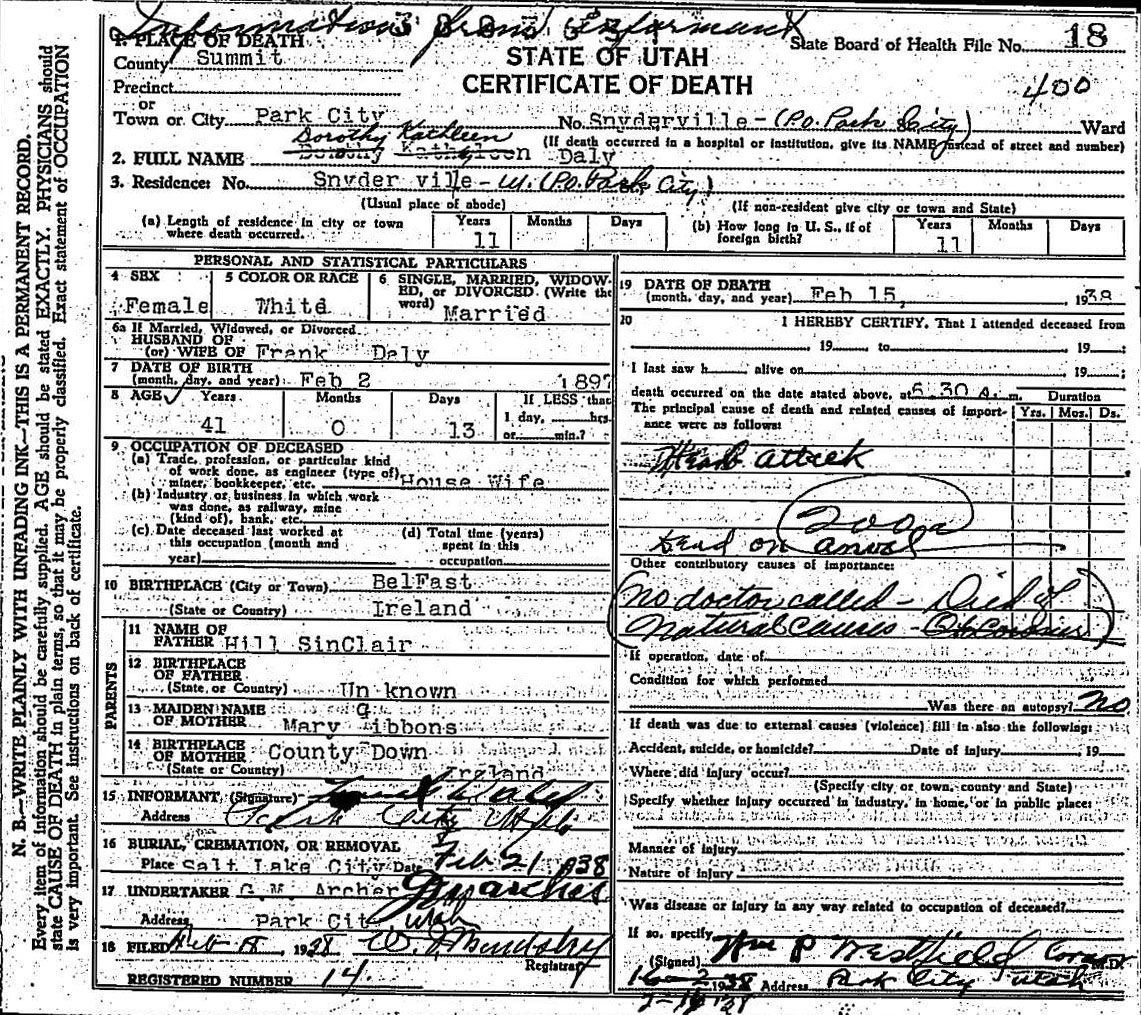 Information from Informant
State Board of Health File No. 18
1. PLACE OF DEATH
STATE OF UTAH
County Summit
CERTIFICATE OF DEATH
400
Precinct
or
Town or City Park City No. Snyderville - (P.O. Park City) Ward
Dorothy Kathleen
(If death occurred in a hospital or institution, give its NAME instead of street and number)
2. FULL NAME Dorothy Kathleen Daly
3. Residence: No. Snyder ville - (P.O. Park City)
(Usual place of abode) (If non-resident give city or town and State)
(a) Length of residence in city or town where death occurred. Years 11 Months Days
(b) How long in U. S., if of foreign birth? Years 11 Months Days
PERSONAL AND STATISTICAL PARTICULARS
4 SEX Female
5 COLOR OR RACE White
6 SINGLE, MARRIED, WIDOW-
ED, or DIVORCED. (Write the
word) Married
6a If Married, Widowed, or Divorced
HUSBAND OF
(or) WIFE OF Frank Daly
7 DATE OF BIRTH
(month, day, and year) Feb 2 1897
8 AGE Years 41 Months 0 Days 13
If LESS than
1 day, hrs.
or min.?
9 OCCUPATION OF DECEASED
(a) Trade, profession, or particular kind
of work done, as engineer (type of)
miner, bookkeeper, etc. House Wife
(b) Industry or business in which work
was done, as railway, mine
(kind of), bank, etc.
(c) Date deceased last worked at
this occupation (month and
year)
(d) Total time (years)
spent in this
occupation
10 BIRTHPLACE (City or Town) BelFast
(State or Country) Ireland
PARENTS
11 NAME OF
FATHER Hill SinClair
12 BIRTHPLACE
OF FATHER
(State or Country) Un known
13 MAIDEN NAME G
OF MOTHER Mary ibbons
14 BIRTHPLACE County Down
OF MOTHER
(State or Country) Ireland
15 INFORMANT (Signature)
Address Park City Utah
16 BURIAL, CREMATION, OR REMOVAL
Place Salt Lake City Date Feb 21 1938
17 UNDERTAKER G M Archer GM Archer
Address Park City Utah
18 FILED Feb 18, 1938
Registrar
REGISTERED NUMBER 14.
19 DATE OF DEATH
(month, day, and year) Feb 15, 1938
20 I HEREBY CERTIFY, That I attended deceased from
19 to 19 ;
I last saw h alive on 19 ;
death occurred on the date stated above, at 6.30 A. m.
The principal cause of death and related causes of import-
ance were as follows:
Duration
Yrs. Mos. Ds.
Heart attack
200a
dead on arival
Other contributory causes of importance:
No doctor called - Died of
natural causes -
If operation, date of
Condition for which performed
Was there an autopsy? no
If death was due to external causes (violence) fill in also the following:
Accident, suicide, or homicide? Date of injury 19
Where did injury occur?
(Specify city or town, county and State)
Specify whether injury occurred in industry, in home, or in public place:
Manner of injury
Nature of injury
Was disease or injury in any way related to occupation of deceased?
If so, specify
(Signed) Wm P Westfield Coroner M.D.
2-16 1938 Address Park City Utah
N. B.—WRITE PLAINLY WITH UNFADING INK—THIS IS A PERMANENT RECORD.
Every item of information should be carefully supplied. AGE should be stated EXACTLY. PHYSICIANS should
state CAUSE OF DEATH in plain terms, so that it may be properly classified. Exact statement of OCCUPATION
is very important. See instructions on back of certificate.